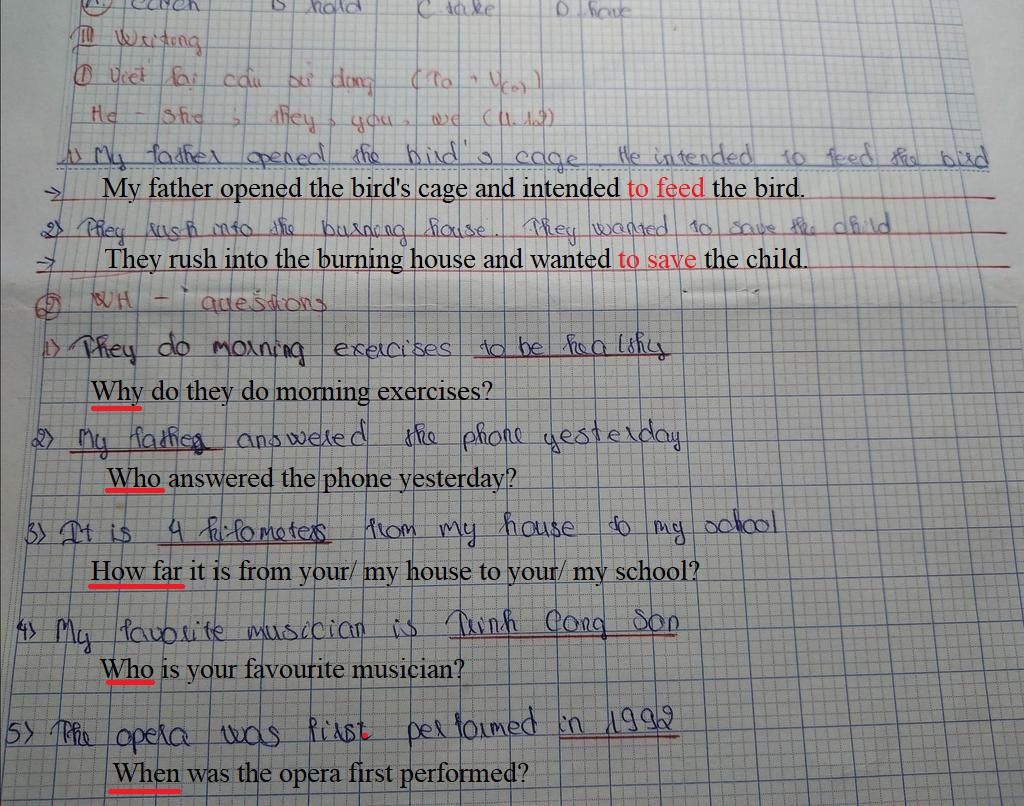 A. catch B hold C take D have
III Writing
① Viết lại câu sử dụng (To + V(o))
He - she, they, you, we (1.12)
1) My father opened the bird's cage. He intended to feed the bird
→ My father opened the bird's cage and intended to feed the bird.
2) They rush into the burning house. They wanted to save the child
→ They rush into the burning house and wanted to save the child.
② WH - questions
1) They do morning exercises to be healthy
Why do they do morning exercises?
2) My father answered the phone yesterday
Who answered the phone yesterday?
3) It is 4 kilometers from my house to my school
How far it is from your/ my house to your/ my school?
4) My favourite musician is Trinh Cong Son
Who is your favourite musician?
5) The opera was first performed in 1992
When was the opera first performed?